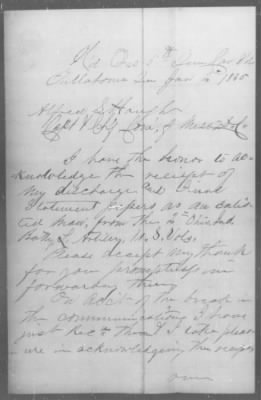 Hd Qrs 5th Tenn Cav Vols
Tullahoma Tenn Jan 1865
Alfred S. Hough
Capt & Chf Com. of Musters
I have the honor to ac-
knowledge the receipt of
my discharge and
statement papers as an enlis-
ted man, from the 2nd Ohio Ind
Batty Artlery, U. S. Vols.
Please accept my thanks
for your promptness in
forwarding them
On acct. of the break in
the communications I have
just Recd them & I take pleas-
ure in acknowledging the receipt